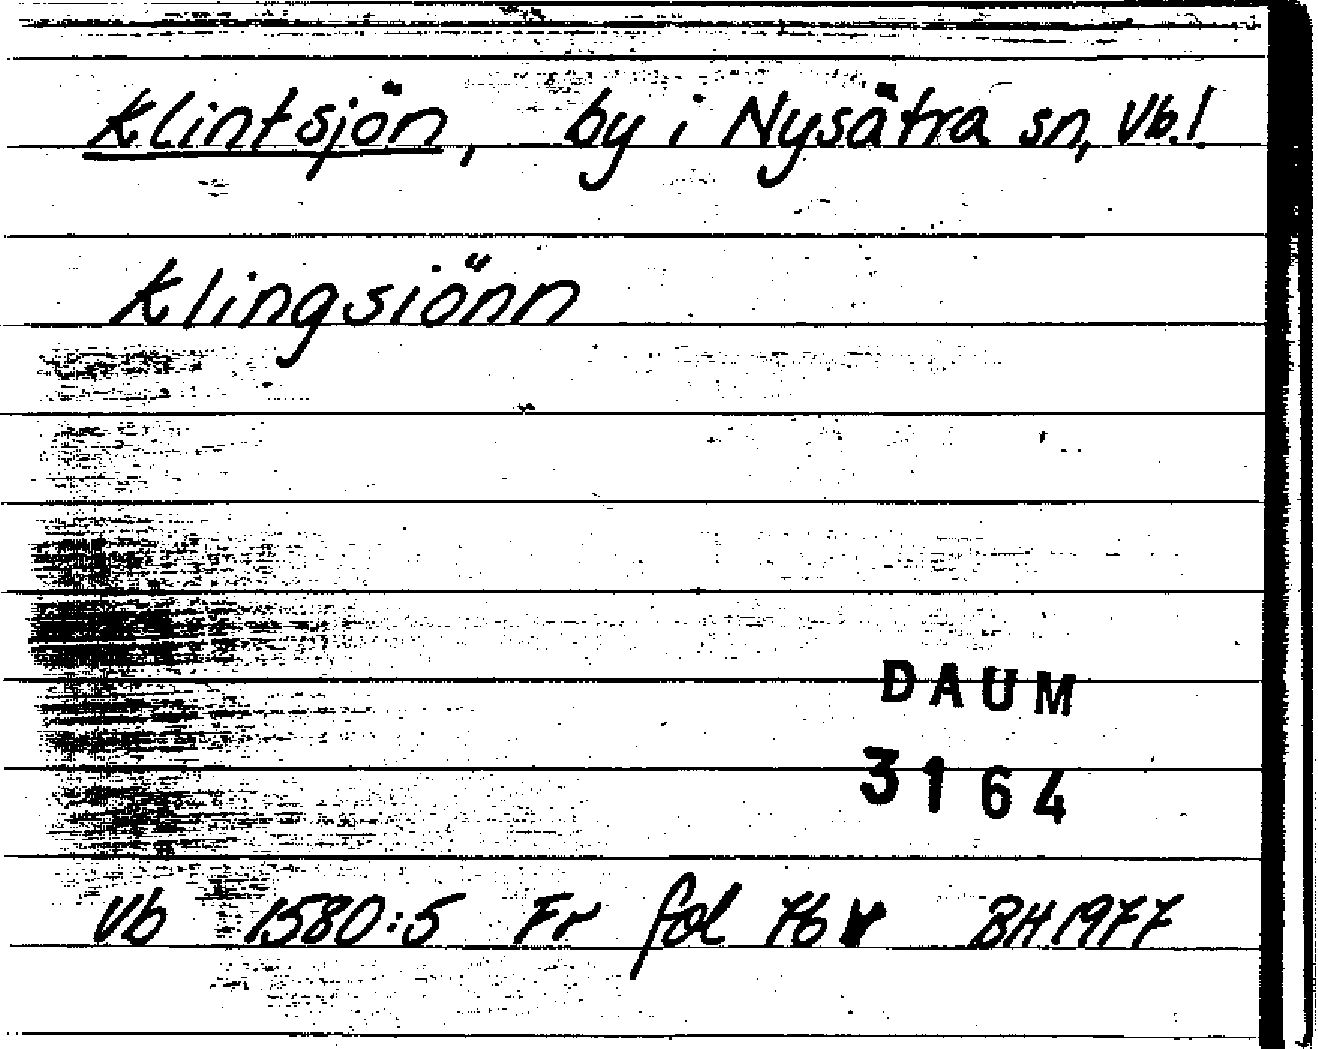 Klintsjön, by i Nysätra sn, Vb.!
Klingsiönn
DAUM
3164
Vb 1580:5 Fr fol 76 v BH 1977